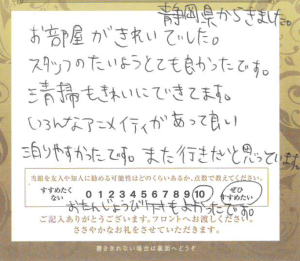 静岡県からきました。
お部屋がきれいでした。
スタッフのたいようとても良かったです。
清掃もきれいにできてます。
いろんなアニメイティがあって良い
泊りやすかたです。また行きたいと思っています
当館を友人や知人に勧める可能性はどのくらいあるか、点数で教えてください。
すすめたくない 0 1 2 3 4 5 6 7 8 9 10 ぜひすすめたい
おたんじょうびケーキもよかったです。
ご記入ありがとうございます。フロントへお渡しください。
ささやかなお礼をさせていただきます。
書ききれない場合は裏面へどうぞ